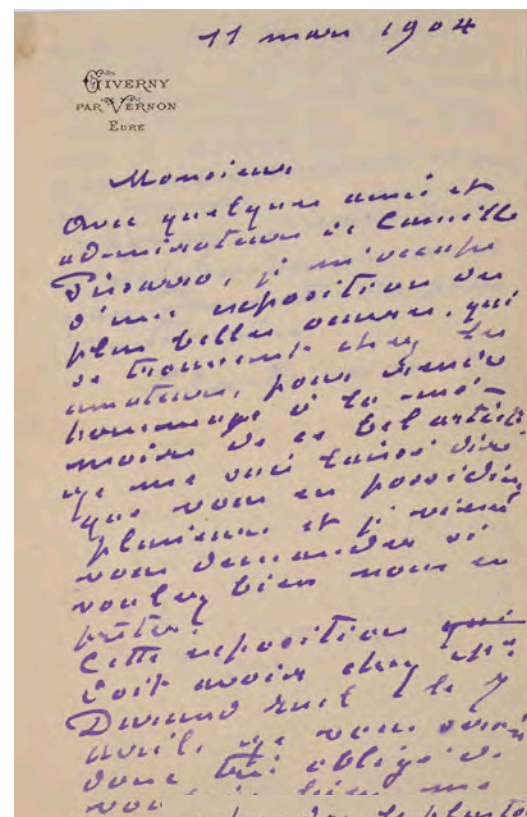 11 mars 1904
GIVERNY
PAR VERNON
EURE
Monsieur
Avec quelques amis et
admirateurs de Camille
Pissarro, je m'occupe
d'une exposition des
plus belles œuvres, qui
se trouvent chez les
amateurs, pour rendre
hommage à la mé-
moire de ce bel artiste
je me suis laissé dire
que vous en possédiez
plusieurs et je viens
vous demander si
voulez bien nous en
prêter.
Cette exposition qui
doit avoir chez Mr
Durand Ruel le 7
avril, je vous serais
donc très obligé de
bien me
le plusto